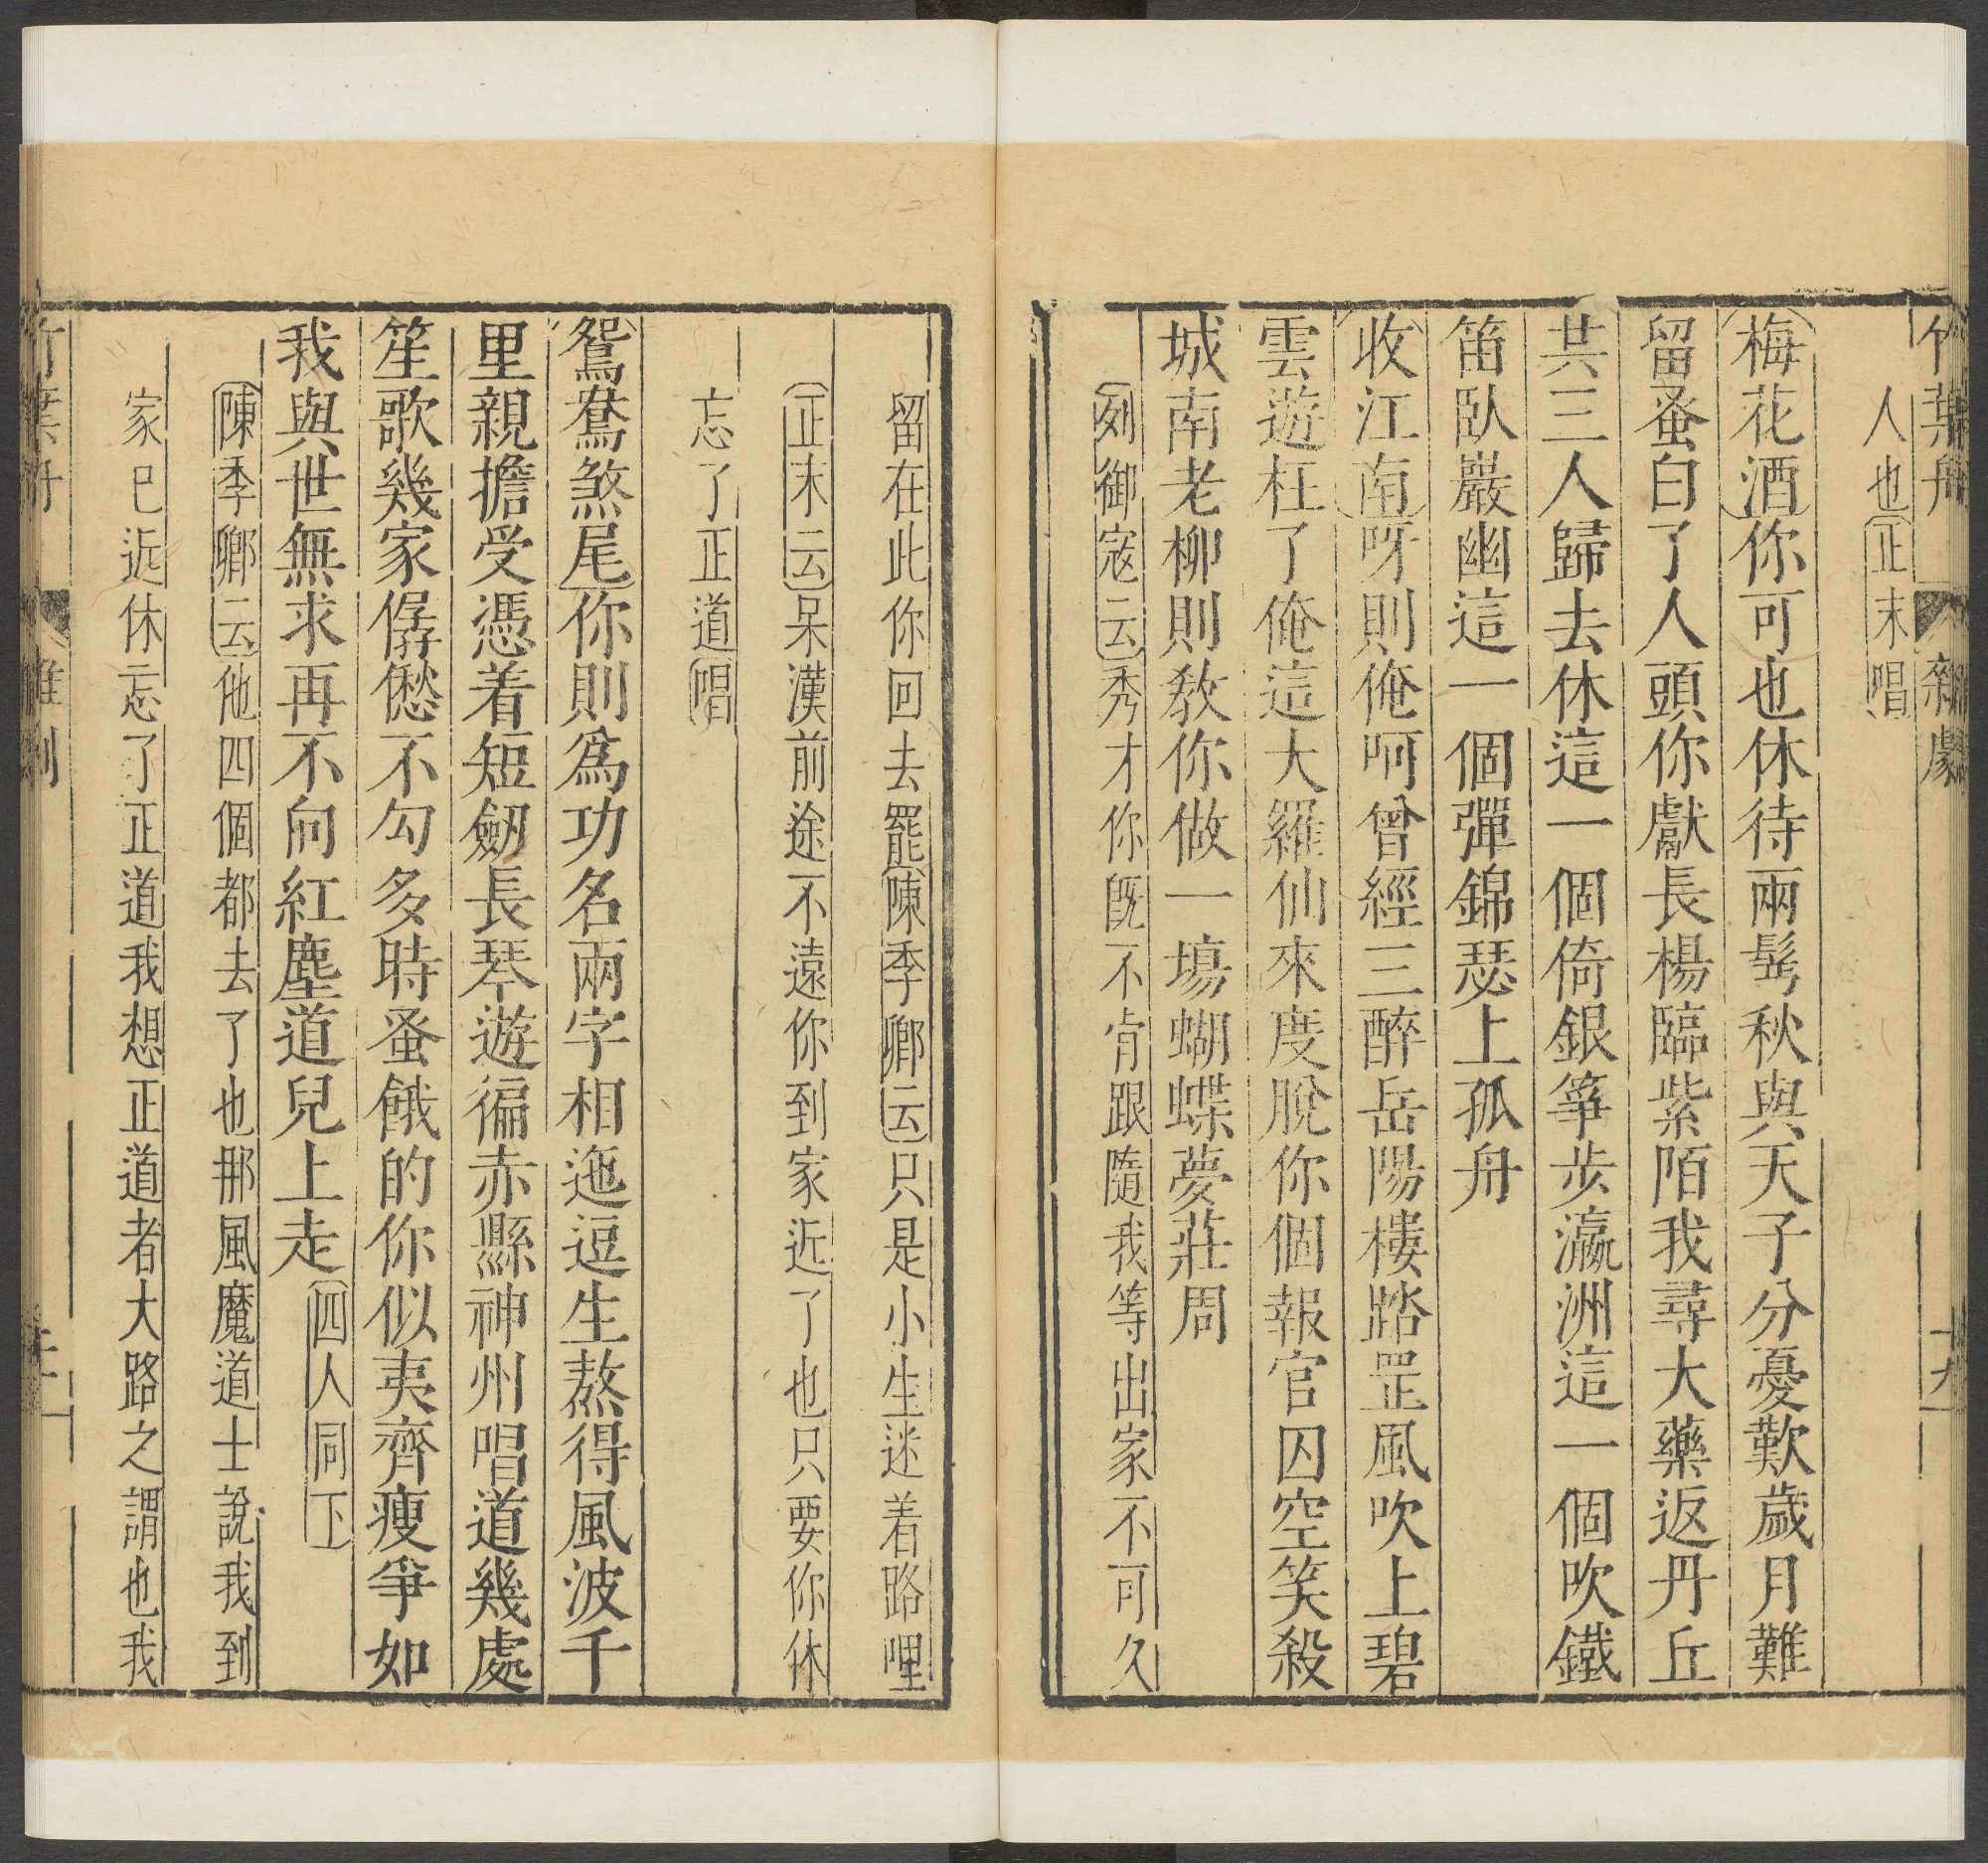 竹葉舟 雜劇 十九
人也正末唱
梅花酒你可也休待兩髩秋與天子分憂歎歲月難
留蚤白了人頭你獻長楊臨紫陌我尋大藥返丹丘
共三人歸去休這一個倚銀箏步瀛洲這一個吹鐵
笛臥巖幽這一個彈錦瑟上孤舟
收江南呀則俺呵曾經三醉岳陽樓踏罡風吹上碧
雲遊枉了俺這大羅仙來度脫你個報官囚空笑殺
城南老柳則敎你做一場蝴蝶夢莊周
列御寇云秀才你旣不肯跟隨我等出家不可久
留在此你回去罷陳季卿云只是小生迷着路哩
正末云呆漢前途不遠你到家近了也只要你休
忘了正道唱
鴛鴦煞尾你則爲功名兩字相迤逗生熬得風波千
里親擔受憑着短劒長琴遊徧赤縣神州唱道幾處
笙歌幾家僝僽不勾多時蚤餓的你似夷齊瘦爭如
我與世無求再不向紅塵道兒上走四人同下
陳季卿云他四個都去了也那風魔道士說我到
家已近休忘了正道我想正道者大路之謂也我
竹葉舟 雜劇